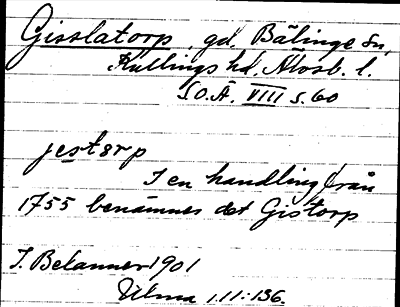 Gisslatorp, gd, Bälinge sn,
Kullings hd, Älvsb. l.
SO.Ä. VIII s. 60
jestorp
I en handling från
1755 benämnes det Gistorp
I. Belanner 1901
Ulma 111:136.